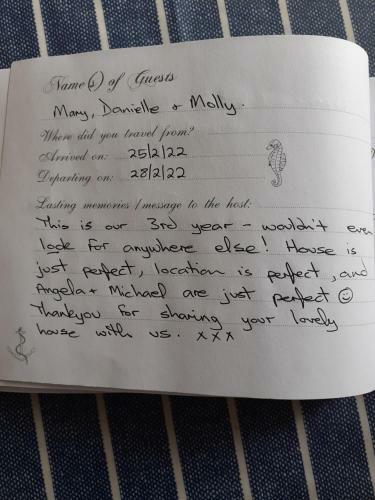 Name(s) of Guests
Mary, Danielle + Molly.
Where did you travel from?
Arrived on: 25/2/22
Departing on: 28/2/22
Lasting memories / message to the host:
This is our 3rd year - wouldn't even
look for anywhere else! House is
just perfect, location is perfect, and
Angela + Michael are just perfect ☺
Thankyou for sharing your lovely
house with us. xxx